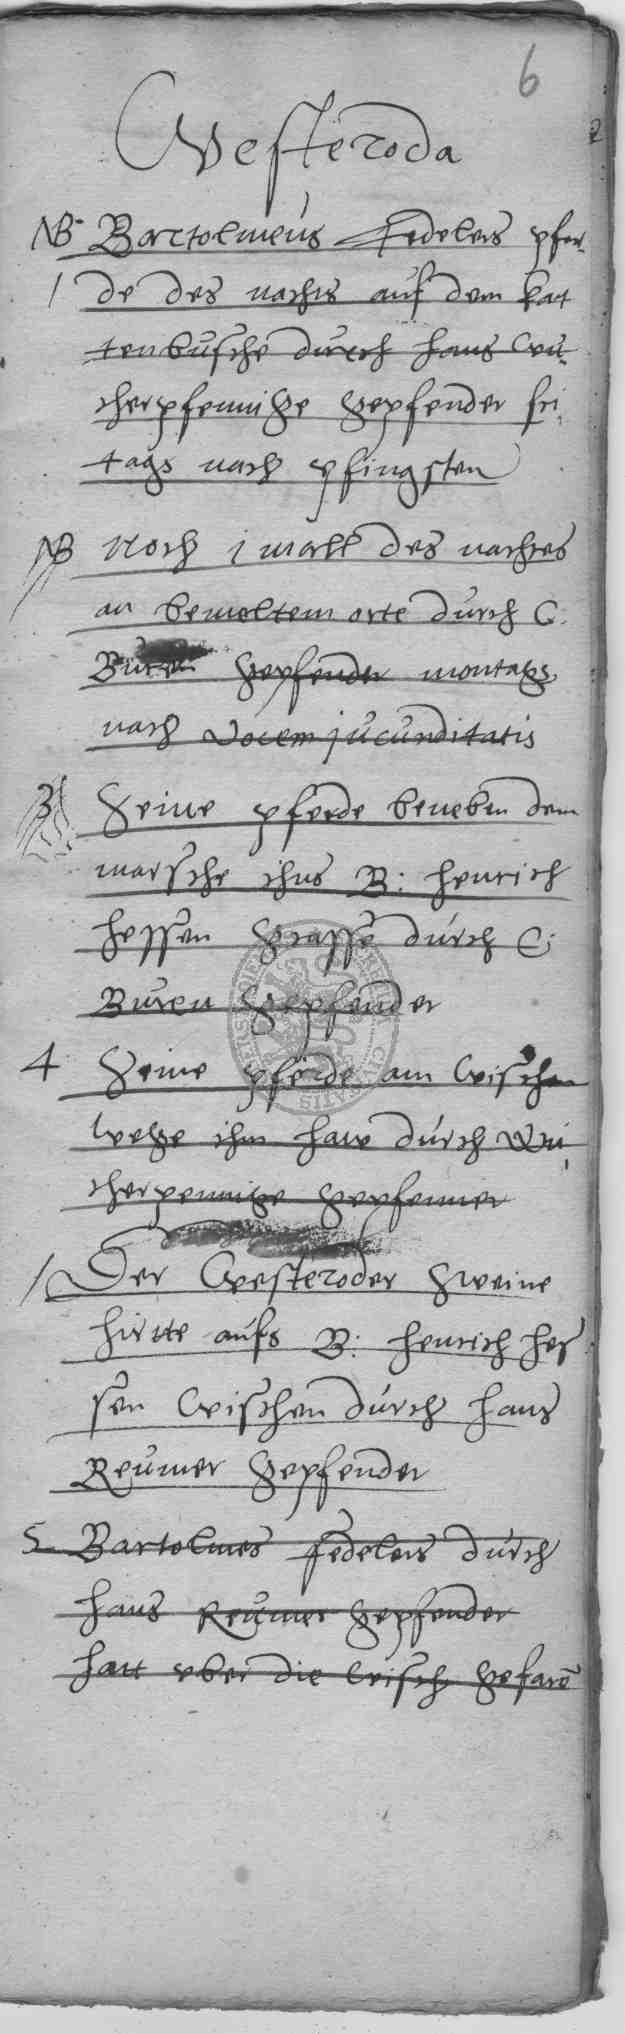 6
Westeroda
NB Bartolmeus Fedelers pfer¬
1 de des nachts auf dem katt
tenbusche durch hans Wu¬
cherpfennige gepfendet fri¬
tags nach pfingsten
NB Noch 1 mall des nachtes
an bemeltem orte durch C.
Buren gepfendet montags
nach Vocem jucunditatis
3 Seine pferde beneben dem
marsche ihns B: Henrich
hessen grasse durch C:
Buren gepfendet
4 Seine pferde am Wischen
wege ihm haw durch Wu¬
cherpennige gepfennet
1 Der Westeroder Sweine
hirtte aufs B: Henrich hes
sen Wischen durch hans
Reumer gepfendet
5 Bartolmes Fedelers durch
hans Reumer gepfendet
hatt vber die wisch gefarē